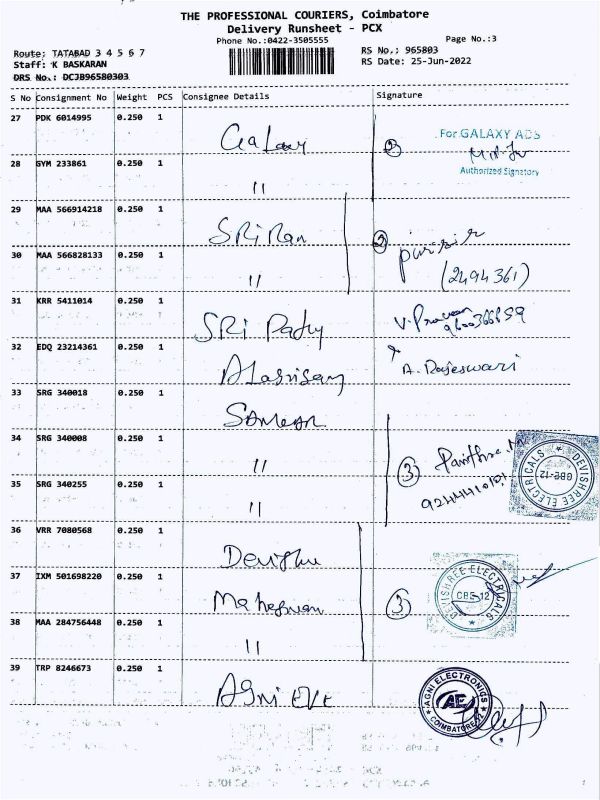 THE PROFESSIONAL COURIERS, Coimbatore
Delivery Runsheet - PCX
Phone No.:0422-3505555
Page No.:3
Route; TATABAD 3 4 5 6 7
RS No.; 965803
Staff: K BASKARAN
RS Date: 25-Jun-2022
DRS No.: DCJB96580303
S No Consignment No Weight PCS Consignee Details Signature
27 PDK 6014995 0.250 1 Galaxy
For GALAXY ADS
Authorized Signatory
28 GYM 233861 0.250 1 11
2
29 MAA 566914218 0.250 1 SRi Ran
30 MAA 566828133 0.250 1 11
2
(2494361)
31 KRR 5411014 0.250 1 SRi Pathy V. Praveen
32 EDQ 23214361 0.250 1 A. Rajeswari
33 SRG 340018 0.250 1
34 SRG 340008 0.250 1 11
3
35 SRG 340255 0.250 1 11
DEVISHREE ELECTRICALS
CBE-12
36 VRR 7080568 0.250 1
37 IXM 501698220 0.250 1
3
DEVISHREE ELECTRICALS
CBE-12
38 MAA 284756448 0.250 1 11
39 TRP 8246673 0.250 1 AGni EVE
AGNI ELECTRONICS
AE
COIMBATORE-12